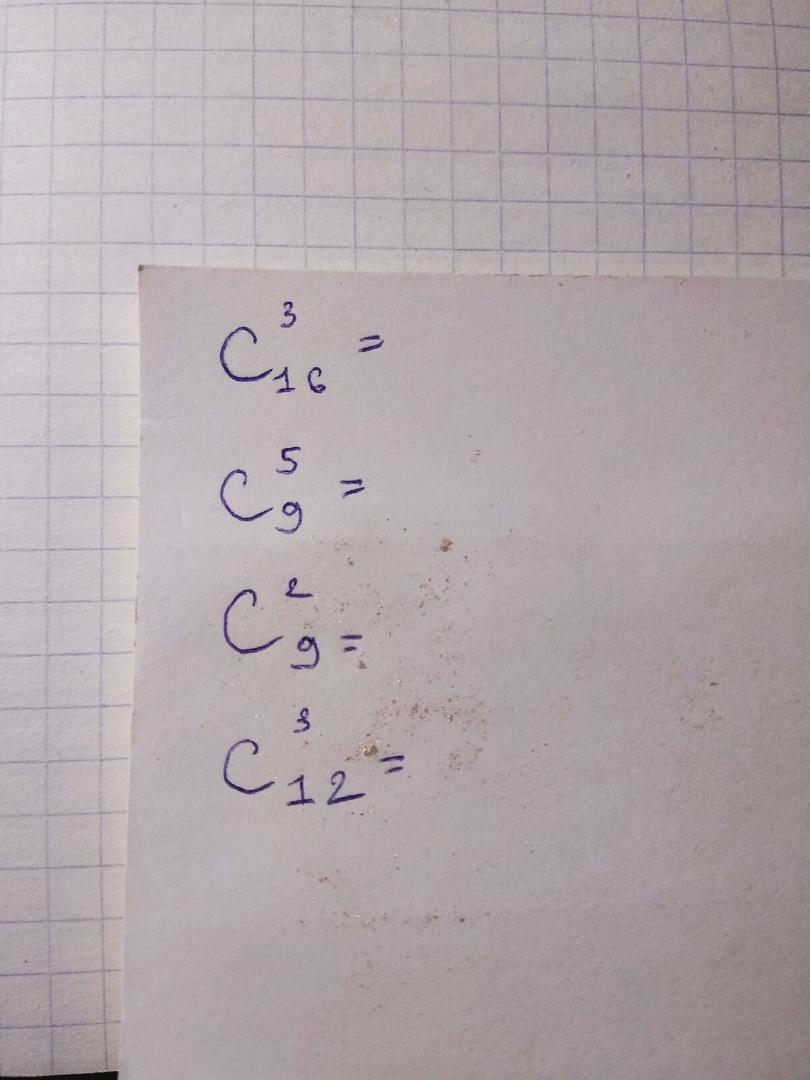 C₁₆³ =
C₉⁵ =
C₉² =
C₁₂³ =